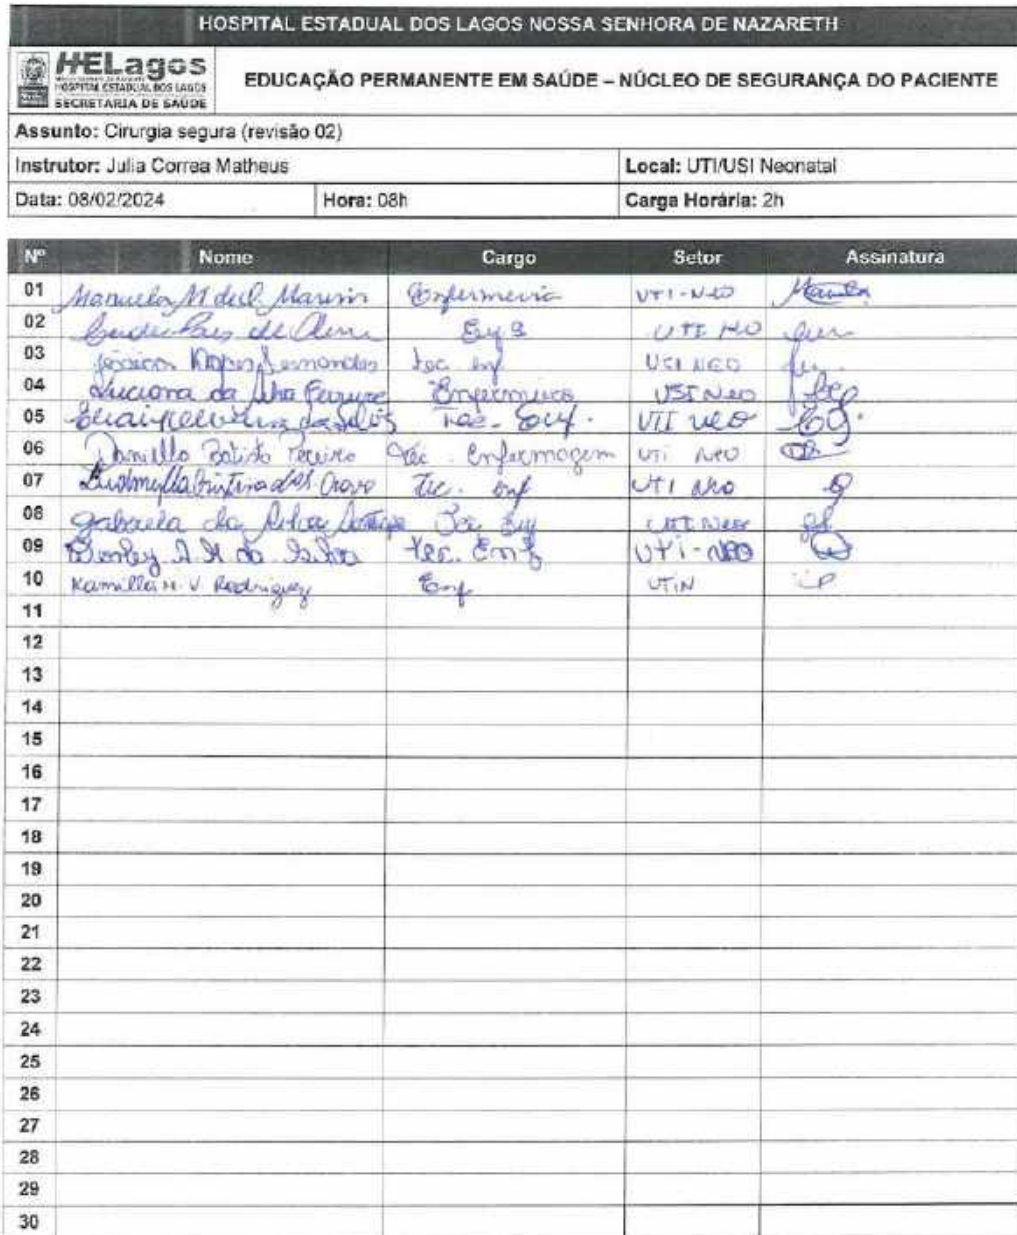 HOSPITAL ESTADUAL DOS LAGOS NOSSA SENHORA DE NAZARETH
HELagos
HOSPITAL ESTADUAL DOS LAGOS
SECRETARIA DE SAÚDE
EDUCAÇÃO PERMANENTE EM SAÚDE – NÚCLEO DE SEGURANÇA DO PACIENTE
Assunto: Cirurgia segura (revisão 02)
Instrutor: Julia Correa Matheus Local: UTI/USI Neonatal
Data: 08/02/2024 Hora: 08h Carga Horária: 2h
Nº Nome Cargo Setor Assinatura
01 Manuela M Marini Enfermeira UTI-NEO Manuela
02 UTI NEO
03 Jéssica Lopes Fernandes Tec enf USI NEO
04 Luciana da Enfermeira USI NEO
05 Tec. Enf. UTI NEO
06 Daniella Batista Pereiro Téc. Enfermagem UTI NEO
07 Tec. enf UTI NEO
08 Gabriela da Silva Tec Enf UTI Neo
09 da Silva Tec. Enf UTI-NEO
10 Kamilla M. V. Rodriguez Enf UTIN
11
12
13
14
15
16
17
18
19
20
21
22
23
24
25
26
27
28
29
30